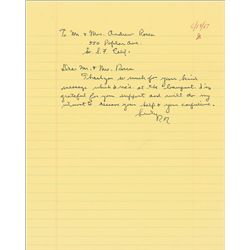 6/19/67
To Mr. & Mrs. Andrew Rosen
370 Poplar Ave.
So. S.F. Calif.
Dear Mr. & Mrs. Rosen
Thank you so much for your kind
message which I rec'd at the Cowpalace. I'm
grateful for your support and will do my
utmost to deserve your help & your confidence.
Sincerely
RR